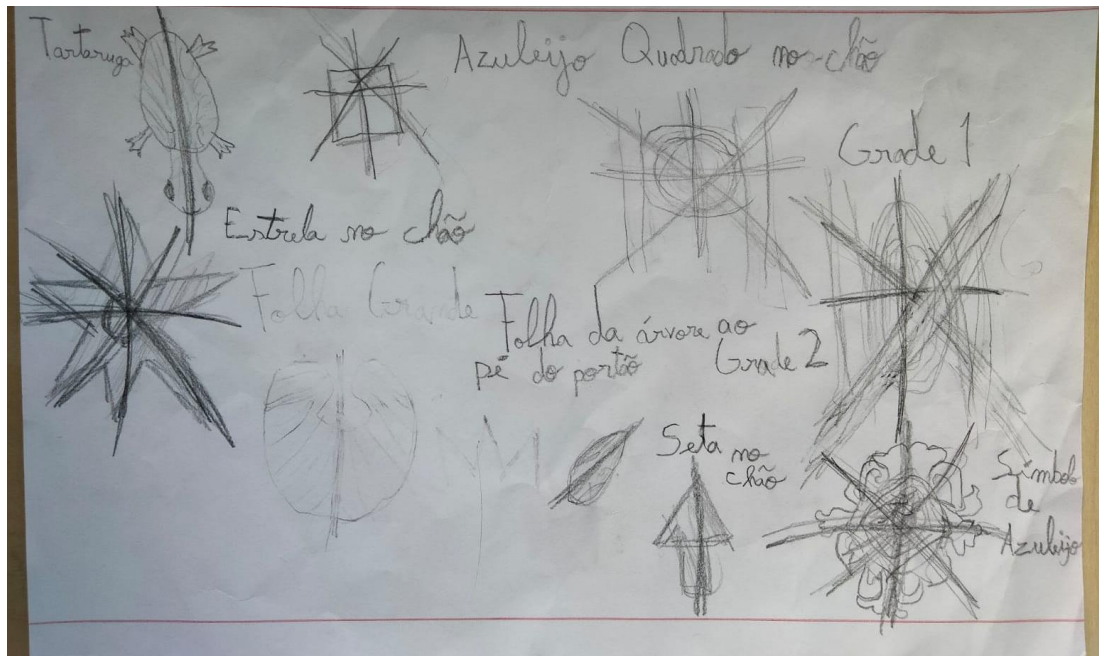 Tartaruga
Azuleijo Quadrado no chão
Grade 1
Estrela no chão
Folha Grande
Folha da árvore ao
pé do portão
Grade 2
Seta no
chão
Símbolo
de
Azuleijo